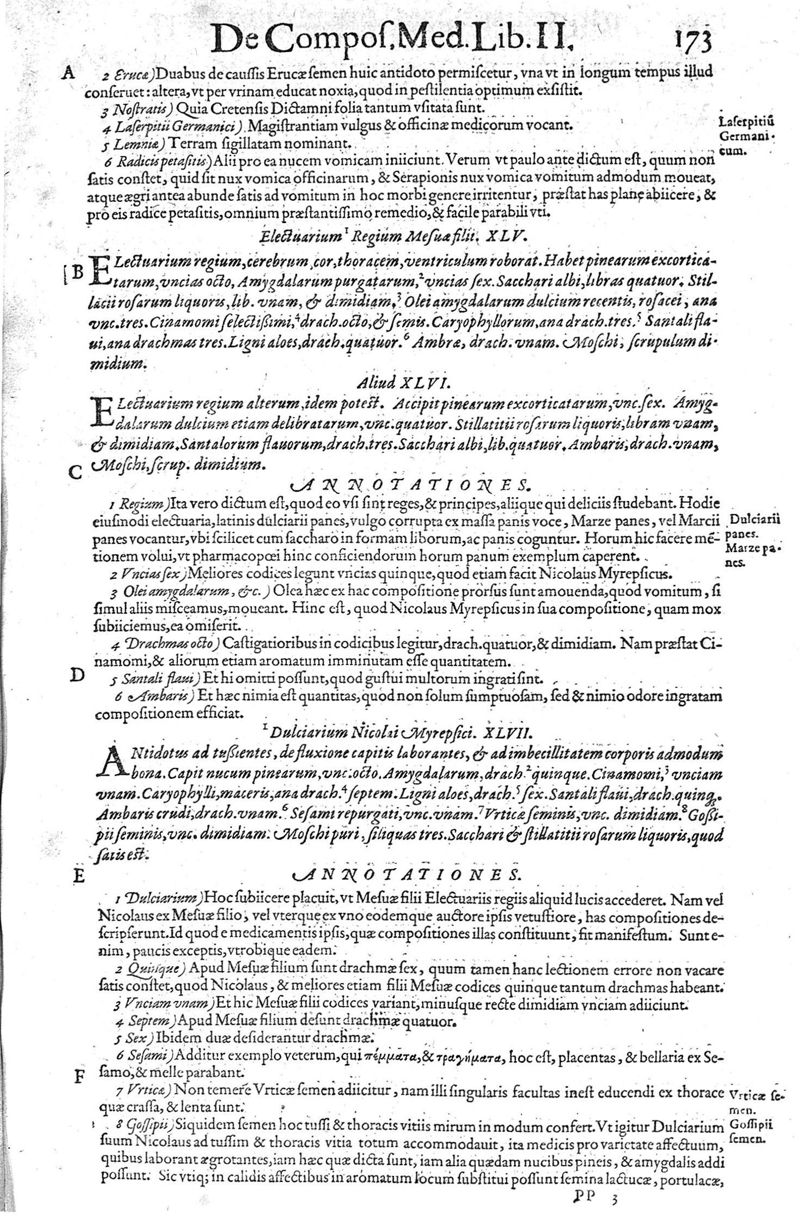 De Compos. Med. Lib. II. 173
A 2 Erucæ) Duabus de caussis Erucæ semen huic antidoto permiscetur, vna vt in longum tempus illud
conseruet: altera, vt per vrinam educat noxia, quod in pestilentia optimum existit.
3 Nostratis) Quia Cretensis Dictamni folia tantum vsitata sunt.
4 Laserpitii Germanici) Magistrantiam vulgus & officinæ medicorum vocant.
Laserpitiū
Germani-
cum.
5 Lemnia) Terram sigillatam nominant.
6 Radicis petasitis) Alii pro ea nucem vomicam iniiciunt. Verum vt paulo ante dictum est, quum non
satis constet, quid sit nux vomica officinarum, & Serapionis nux vomica vomitum admodum moueat,
atque ægri antea abunde satis ad vomitum in hoc morbi genere irritentur, præstat has plane abiicere, &
pro eis radice petasitis, omnium præstantissimo remedio, & facile parabili vti.
Electuarium 1 Regium Mesuæ filii. XLV.
B ELectuarium regium, cerebrum, cor, thoracem, ventriculum roborat. Habet pinearum excortica-
tarum, vncias octo, Amygdalarum purgatarum, 2 vncias sex. Sacchari albi, libras quatuor. Stil-
lacii rosarum liquoris, lib. vnam, & dimidiam, 3 Olei amygdalarum dulcium recentis, rosacei, ana
vnc. tres. Cinamomi selectissimi, 4 drach. octo, & semis. Caryophyllorum, ana drach. tres. 5 Santali fla-
ui, ana drachmas tres. Ligni aloes, drach. quatuor. 6 Ambræ, drach. vnam. Moschi, scrupulum di-
midium.
Aliud XLVI.
ELectuarium regium alterum, idem potest. Accipit pinearum excorticatarum, vnc. sex. Amyg-
dalarum dulcium etiam delibratarum, vnc. quatuor. Stillatitii rosarum liquoris, libram vnam,
& dimidiam. Santalorum flauorum, drach. tres. Sacchari albi, lib. quatuor. Ambaris, drach. vnam,
C Moschi, scrup. dimidium.
ANNOTATIONES.
1 Regium) Ita vero dictum est, quod eo vsi sint reges, & principes, aliique qui deliciis studebant. Hodie
eiusmodi electuaria, latinis dulciarii panes, vulgo corrupta ex massa panis voce, Marze panes, vel Marcii
panes vocantur, vbi scilicet cum saccharo in formam liborum, ac panis coguntur. Horum hic facere mē-
tionem volui, vt pharmacopœi hinc conficiendorum horum panum exemplum caperent.
Dulciarii
panes.
Marze pa-
nes.
2 Vncias sex) Meliores codices legunt vncias quinque, quod etiam facit Nicolaus Myrepsicus.
3 Olei amygdalarum, &c.) Olea hæc ex hac compositione prorsus sunt amouenda, quod vomitum, si
simul aliis misceamus, moueant. Hinc est, quod Nicolaus Myrepsicus in sua compositione, quam mox
subiiciemus, ea omiserit.
4 Drachmas octo) Castigatioribus in codicibus legitur, drach. quatuor, & dimidiam. Nam præstat Ci-
namomi, & aliorum etiam aromatum imminutam esse quantitatem.
D 5 Santali flaui) Et hi omitti possunt, quod gustui multorum ingrati sint.
6 Ambaris) Et hæc nimia est quantitas, quod non solum sumptuosam, sed & nimio odore ingratam
compositionem efficiat.
1 Dulciarium Nicolai Myrepsici. XLVII.
ANtidotus ad tussientes, defluxione capitis laborantes, & ad imbecillitatem corporis admodum
bona. Capit nucum pinearum, vnc. octo. Amygdalarum, drach. 2 quinque. Cinamomi, 3 vnciam
vnam. Caryophylli, maceris, ana drach. 4 septem. Ligni aloes, drach. 5 sex. Santali flaui, drach. quinq;.
Ambaris crudi, drach. vnam. 6 Sesami repurgati, vnc. vnam. 7 Vrticæ seminis, vnc. dimidiam. 8 Gossi-
pii seminis, vnc. dimidiam. Moschi puri, siliquas tres. Sacchari & stillatitii rosarum liquoris, quod
satis est.
E ANNOTATIONES.
1 Dulciarium) Hoc subiicere placuit, vt Mesuæ filii Electuariis regiis aliquid lucis accederet. Nam vel
Nicolaus ex Mesuæ filio, vel vterque ex vno eodemque auctore ipsis vetustiore, has compositiones de-
scripserunt. Id quod e medicamentis ipsis, quæ compositiones illas constituunt, fit manifestum. Sunt e-
nim, paucis exceptis, vtrobique eadem.
2 Quinque) Apud Mesuæ filium sunt drachmæ sex, quum tamen hanc lectionem errore non vacare
satis constet, quod Nicolaus, & meliores etiam filii Mesuæ codices quinque tantum drachmas habeant.
3 Vnciam vnam) Et hic Mesuæ filii codices variant, minusque recte dimidiam vnciam adiiciunt.
4 Septem) Apud Mesuæ filium desunt drachmæ quatuor.
5 Sex) Ibidem duæ desiderantur drachmæ.
6 Sesami) Additur exemplo veterum, qui πέμματα, & τραγήματα, hoc est, placentas, & bellaria ex Se-
F samo, & melle parabant.
7 Vrticæ) Non temere Vrticæ semen adiicitur, nam illi singularis facultas inest educendi ex thorace
quæ crassa, & lenta sunt.
Vrticæ se-
men.
8 Gossipii) Siquidem semen hoc tussi & thoracis vitiis mirum in modum confert. Vt igitur Dulciarium
suum Nicolaus ad tussim & thoracis vitia totum accommodauit, ita medicis pro varietate affectuum,
Gossipii
semen.
quibus laborant ægrotantes, iam hæc quæ dicta sunt, iam alia quædam nucibus pineis, & amygdalis addi
possunt. Sic vtiq; in calidis affectibus in aromatum locum substitui possunt semina lactucæ, portulacæ,
PP 3